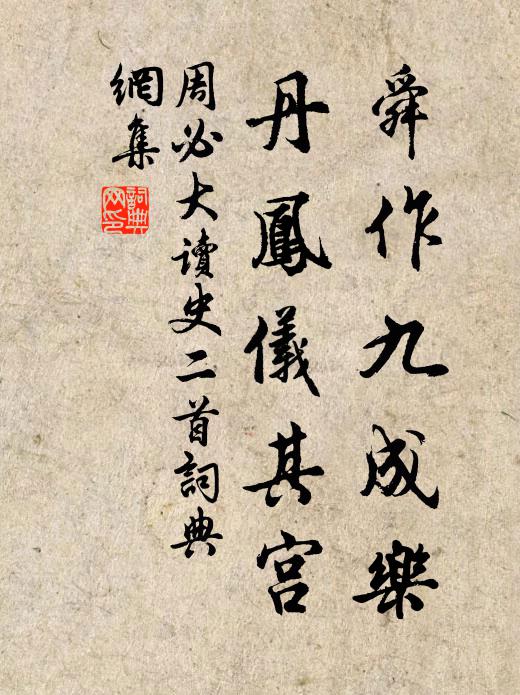 舜作九成樂
丹鳳儀其宫
周必大讀史二首詞典
網集
詞典
网印